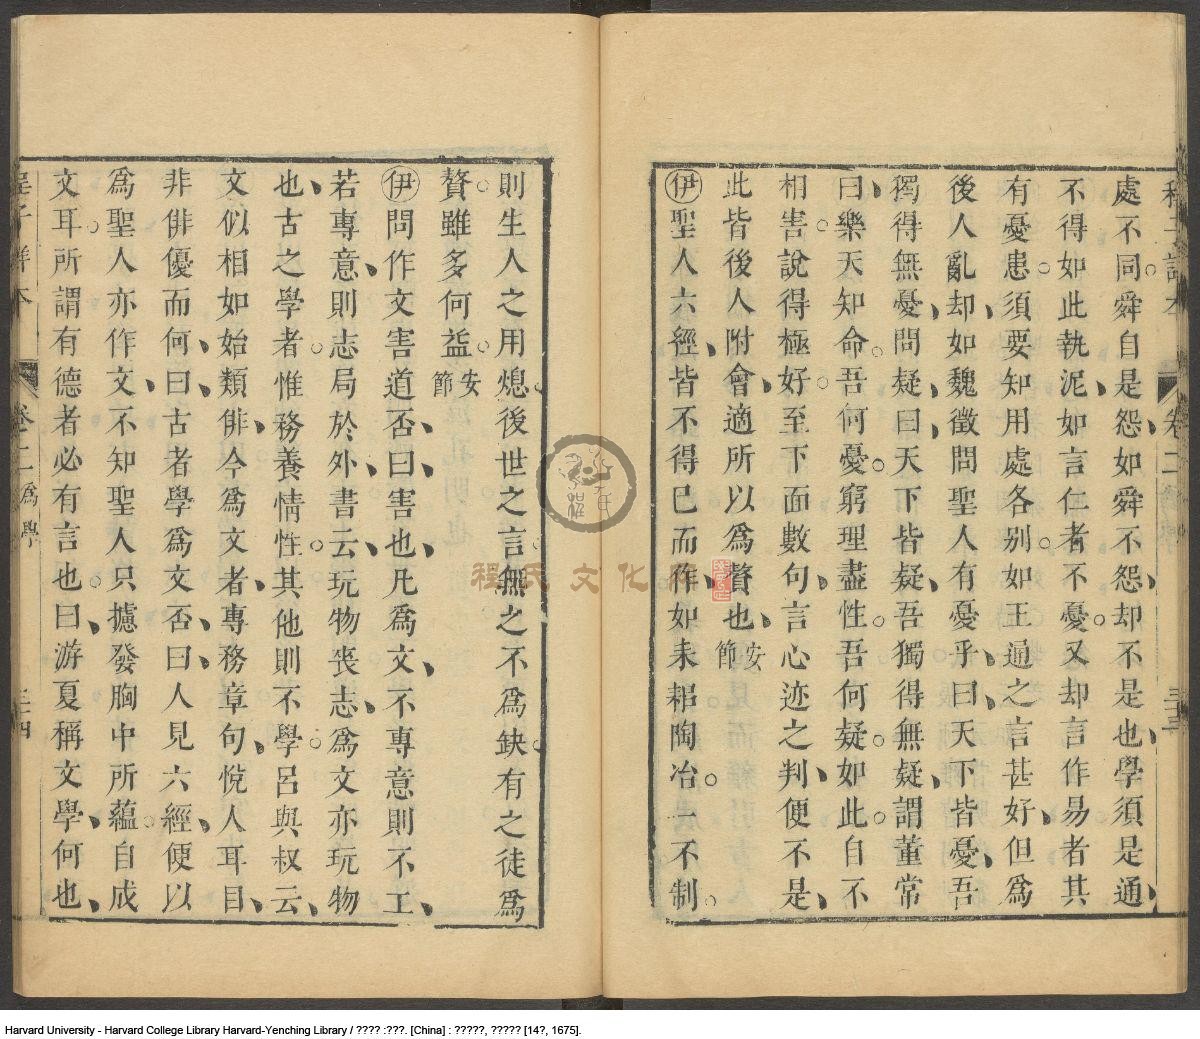 處不同舜自是怨如舜不怨却不是也學須是通
不得如此執泥如言仁者不憂又却言作易者其
有憂患須要知用處各别如王通之言甚好但爲
後人亂却如魏徵問聖人有憂乎曰天下皆憂吾
獨得無憂問疑曰天下皆疑吾獨得無疑謂董常
曰樂天知命吾何憂窮理盡性吾何疑如此自不
相害說得極好至下面數句言心迹之判便不是
此皆後人附會適所以爲贅也 安節
伊 聖人六經皆不得已而作如耒耜陶冶一不制
卷二
則生人之用熄後世之言無之不爲缺有之徒爲
贅雖多何益 安節
伊 問作文害道否曰害也凡爲文不專意則不工
若專意則志局於外書云玩物喪志爲文亦玩物
也古之學者惟務養情性其他則不學呂與叔云
文似相如始類俳今爲文者專務章句悅人耳目
非俳優而何曰古者學爲文否曰人見六經便以
爲聖人亦作文不知聖人只攄發胸中所蘊自成
文耳所謂有德者必有言也曰游夏稱文學何也
卷二 爲學
程氏文化
Harvard University - Harvard College Library Harvard-Yenching Library / ???? :???. [China] : ?????, ????? [14?, 1675].